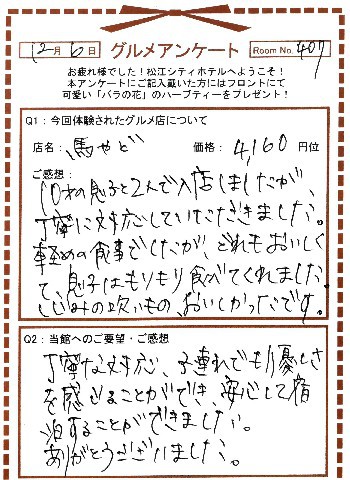 12月6日 グルメアンケート Room No. 407
お疲れ様でした！松江シティホテルへようこそ！
本アンケートにご記入戴いた方にはフロントにて
可愛い「バラの花」のハーブティーをプレゼント！
Q1：今回体験されたグルメ店について
店名：馬やど 価格：4,160円位
ご感想：
10才の息子と2人で入店しましたが、
丁寧に対応していただきました。
軽めの食事でしたが、どれもおいしく
て、息子はもりもり食べてくれました。
しじみの吸いもの、おいしかったです。
Q2：当館へのご要望・ご感想
丁寧な対応、子連れでも優しさ
を感じることができ、安心して宿
泊することができました。
ありがとうございました。